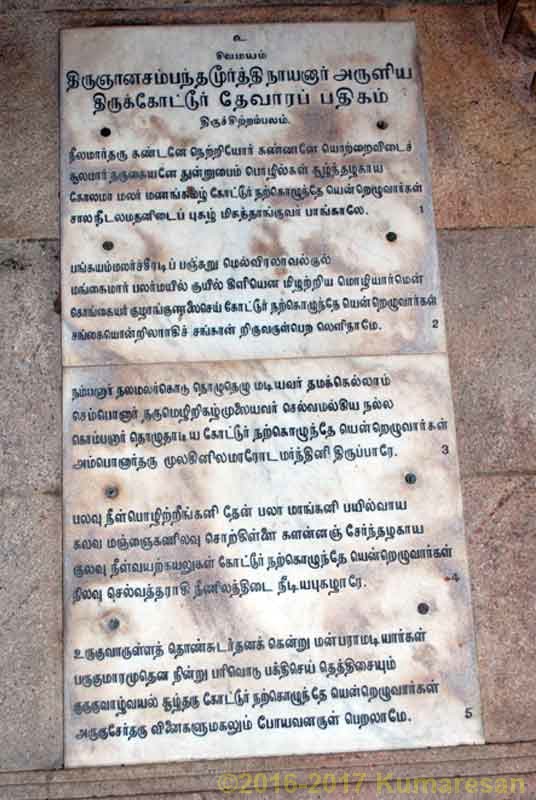 உ
சிவமயம்
திருஞானசம்பந்தமூர்த்தி நாயனார் அருளிய
திருக்கோட்டூர் தேவாரப் பதிகம்
திருச்சிற்றம்பலம்.
நீலமார்தரு கண்டனே நெற்றியோர் கண்ணனே யொற்றைவிடைச்
சூலமார் தருகையனே துன்றுபைம் பொழில்கள் சூழ்ந்தழகாய
கோலமா மலர் மணங்கமழ் கோட்டூர் நற்கொழுந்தே யென்றெழுவார்கள்
சால நீடலமதனிடைப் புகழ் மிகத்தாங்குவர் பாங்காலே. 1
பங்கயம்மலர்ச்சீரடிப் பஞ்சுறு மெல்விரலரவல்குல்
மங்கைமார் பலர்மயில் குயில் கிளியென மிழற்றிய மொழியார்மென்
கொங்கையார் குழாங்குணலைசெய் கோட்டூர் நற்கொழுந்தே யென்றெழுவார்கள்
சங்கையொன்றிலராகிச் சங்கரன் றிருவருள்பெற லெளிதாமே. 2
நம்பனார் நலமலர்கொடு தொழுதெழு மடியவர் தமக்கெல்லாம்
செம்பொனார் தருமெழிறிகழ்முலையவர் செல்வமல்கிய நல்ல
கொம்பனார் தொழுதாடிய கோட்டூர் நற்கொழுந்தே யென்றெழுவார்கள்
அம்பொனார்தரு முலகினிலமரரோட மர்ந்தினி திருப்பாரே. 3
பலவு நீள்பொழிற்றீங்கனி தேன் பலா மாங்கனி பயில்வாய
கலவ மஞ்ஞைகணிலவு சொற்கிள்ளை களன்னஞ் சேர்ந்தழகாய
குலவு நீள்வயற்கயலுகள் கோட்டூர் நற்கொழுந்தே யென்றெழுவார்கள்
நிலவு செல்வத்தராகி நீணிலத்திடை நீடியபுகழாரே. 4
உருகுவாருள்ளத் தொண்சுடர்தனக் கென்று மன்பராமடியார்கள்
பருகுமாரமுதென நின்று பரிவொடு பக்திசெய் தெத்திசையும்
குருகுவாழ்வயல் சூழ்தரு கோட்டூர் நற்கொழுந்தே யென்றெழுவார்கள்
அருகுசேர்தரு வினைகளுமகலும் போயவனருள் பெறலாமே. 5
©2016-2017 Kumaresan